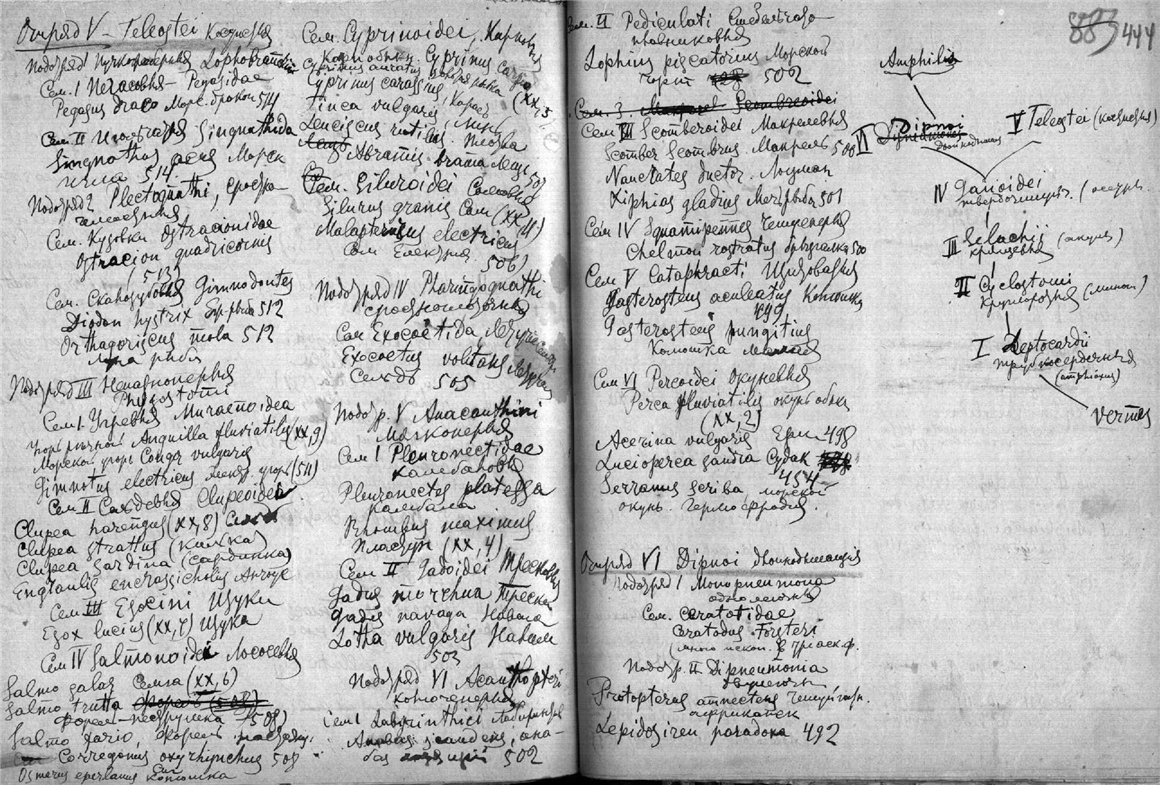 Отряд V – Teleostei Костистыя
Подотряд I Пучкожаберныя Lophobranchii
Сем. I Пегасовыя – Pegasidae
Pegasus draco Морс. дракон 514
Сем II Игл Singnathida
Singnathus acus Морск
игла 514.
Подотряд 2 Plectognathi, Сростно-
челюстныя
Сем. Кузовки Ostracionidae
Ostracion quadricornis
(513)
Сем. Скалозубовыя Gimnodontes
Diodon hystrix Еж-рыба 512
Orthagoriscus mola 512
луна рыба
Подотряд III
Physostomi
Сем I Угревыя Muraenoidea
Угорь речной Anguilla fluviatilis (XX,9)
Морской угорь Conger vulgaris
Gimnotus electricus Электр. угорь (511)
Сем II Сельдевыя Clupeoidei
Clupea harengus (XX,8) Сельдь
Clupea sprattus (Килька)
Clupea Sardina (Сардинка)
Engraulis encrassicholis Анчоус
Сем III Esocini Щуки
Esox lucius (XX,7) Щука
Сем IV Salmonoidei Лососевыя
Salmo salar Семга (XX,6)
Salmo trutta
форель – пеструшка 508)
Salmo fario, форель
Corregonus oxyrhynchus 508
Osmerus eperlanus
Сем. Cyprinoidei, Карповыя
Cyprinus Carpio
Cyprinus auratus
Cyprinus carassius (XX,5
Tinca vulgaris, Линь
Leuciscus rutilus Плотва
Abramis brama Лещ 507
Сем. Siluroidei Сомовыя
Silurus glanis Сом (XX,4)
Malapterurus electricus
Сом Електрич.
506
Подотряд IV Pharingognathi
сростноглоточныя
Сем Exocoetida
Exocoetus volitans Летучая
Сельдь 505
Подотр. V Anacanthini
Мягкоперыя
Сем I Pleuronectidae
Камбаловыя
Pleuronectes platessa
камбала
Rhombus maximus
Палтус (XX,4)
Сем II Gadoidei Тресковыя
Gadus morrhua Треска
Gadus navaga Навага
Lotha vulgaris Налим
503
Подотряд VI Acanthopteri
колючеперыя
Сем I Labirinthici Лабиринтов
Anabas scandens, ана-
бас 502
Сем. II Pediculati Стебельчато-
плавниковыя
Lophius piscatorius Морской
чорт 502
Сем. 3. Scomberoidei
Сем III Scomberoidei Макрелевыя
Scomber Scombrus Макрель 500
Naucrates ductor. Лоцман
Xiphias gladius Меч рыба 501
Сем IV Squamipennes Чешуеперыя
Chelmon rostratus брызгалка 500
Сем V Cataphracti Щитовыя
Gasterosteus aculeatus Колюшка
499
Gasterosteus pungitius
Колюшка малая
Сем VI Percoidei Окуневыя
Perca fluviatilis окунь обык
(XX,2)
Acerina vulgaris Ерш 498
Lucioperca sandra Судак
454
Serranus scriba морской
окунь. Гермафродит.
Отряд VI Dipnoi двоякодышащия
Подотряд I Monopneumona
однолегочныя
Сем. Ceratotidae
Ceratodus Forsteri
(много ископ. в триас ф.
Подотр. II Dipneumonia
двулегочн
Protopterus annectens Чешуйчатн.
африканск
Lepidosiren paradoxa 492
883 444
Amphibia
VI Dipnoi
двоякодышащ
V Teleostei (костистыя)
IV Ganoidei
твердочешуйч. (осетры.
III Selachii (акулы)
хрящевыя
II Cyclostomi
Круглоротыя (миноги)
I Leptocardii
трубкосердечныя
(amphioxus)
Vermes